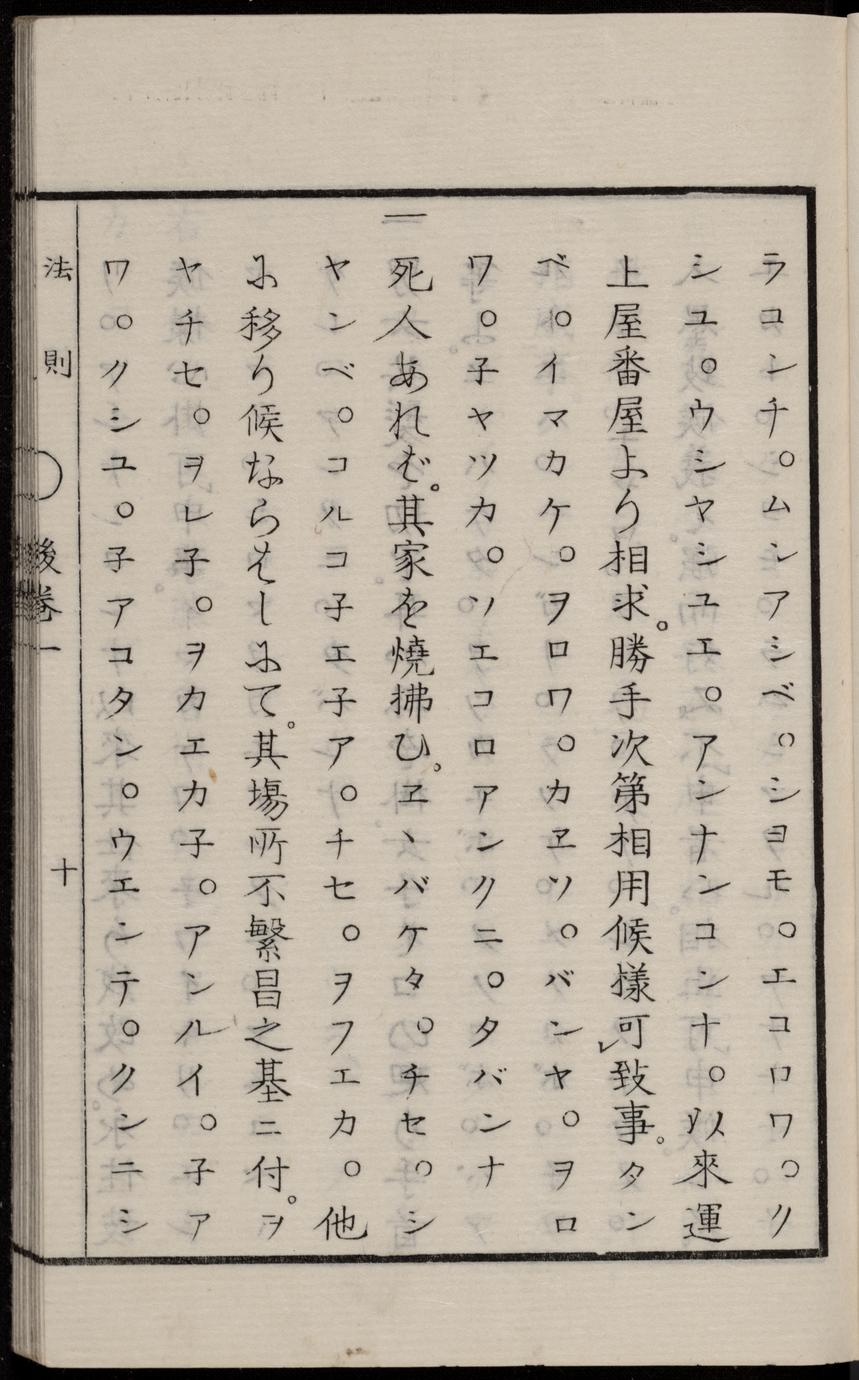 ラコンチ。ムンアシベ。シヨモ。エコロワ。ク
シユ。ウシヤシユエ。アンナンコンナ。以來運
上屋番屋より相求。勝手次第相用候樣可致事。タン
ベ。イマカケ。ヲロワ。カヱツ。バンヤ。ヲロ
ワ。子ヤツカ。ソエコロアンクニ。タバンナ
一 死人あれば。其家を燒拂ひ。ヱヽバケタ。チセ。シ
ヤンベ。コルコ子エ子ア。チセ。ヲフエカ。他
に移り候ならはしにて。其塲所不繁昌之基ニ付。ヲ
ヤチセ。ヲレ子。ヲカエカ子。アンルイ。子ア
ワ。クシユ。子アコタン。ウエンテ。クンニシ
法則 後巻一 十